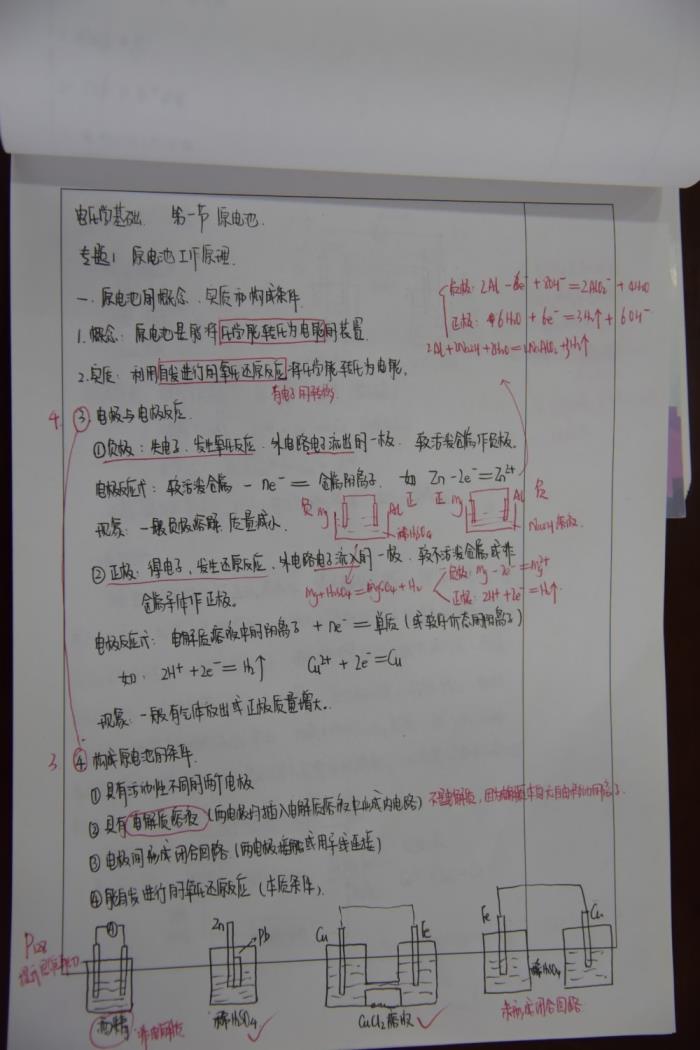 电化学基础. 第一节 原电池.
专题1 原电池工作原理.
一. 原电池的概念、实质和构成条件.
1. 概念: 原电池是能将化学能转化为电能的装置.
2. 实质: 利用自发进行的氧化还原反应将化学能转化为电能.
有电子的转移
负极: 2Al - 6e⁻ + 8OH⁻ = 2AlO₂⁻ + 4H₂O
正极: 6H₂O + 6e⁻ = 3H₂↑ + 6OH⁻
4. ③. 电极与电极反应.
①负极: 失电子、发生氧化反应. 外电路电子流出的一极. 较活泼金属作负极.
电极反应式: 较活泼金属 - ne⁻ = 金属阳离子. 如 Zn - 2e⁻ = Zn²⁺
现象: 一般负极溶解. 质量减小.
负 Mg Al 正 稀H₂SO₄
正 Mg Al 负 NaOH溶液.
② 正极: 得电子, 发生还原反应. 外电路电子流入的一极. 较不活泼金属或非
金属导体作正极.
Mg + H₂SO₄ = MgSO₄ + H₂
负极: Mg - 2e⁻ = Mg²⁺
正极: 2H⁺ + 2e⁻ = H₂↑.
电极反应式: 电解质溶液中的阳离子 + ne⁻ = 单质 (或较低价态的阳离子)
如. 2H⁺ + 2e⁻ = H₂↑ Cu²⁺ + 2e⁻ = Cu
现象: 一般有气体放出或正极质量增大.
3 ④ 构成原电池的条件.
① 具有活动性不同的两个电极
② 具有电解质溶液 (两电极均插入电解质溶液中形成内电路)
③ 电极间形成闭合回路 (两电极接触或用导线连接)
④ 能自发进行的氧化还原反应 (本质条件).
P128
A Zn Pb Cu Fe Fe Cu
酒精 非电解质 稀H₂SO₄ CuCl₂溶液 稀H₂SO₄ 未形成闭合回路